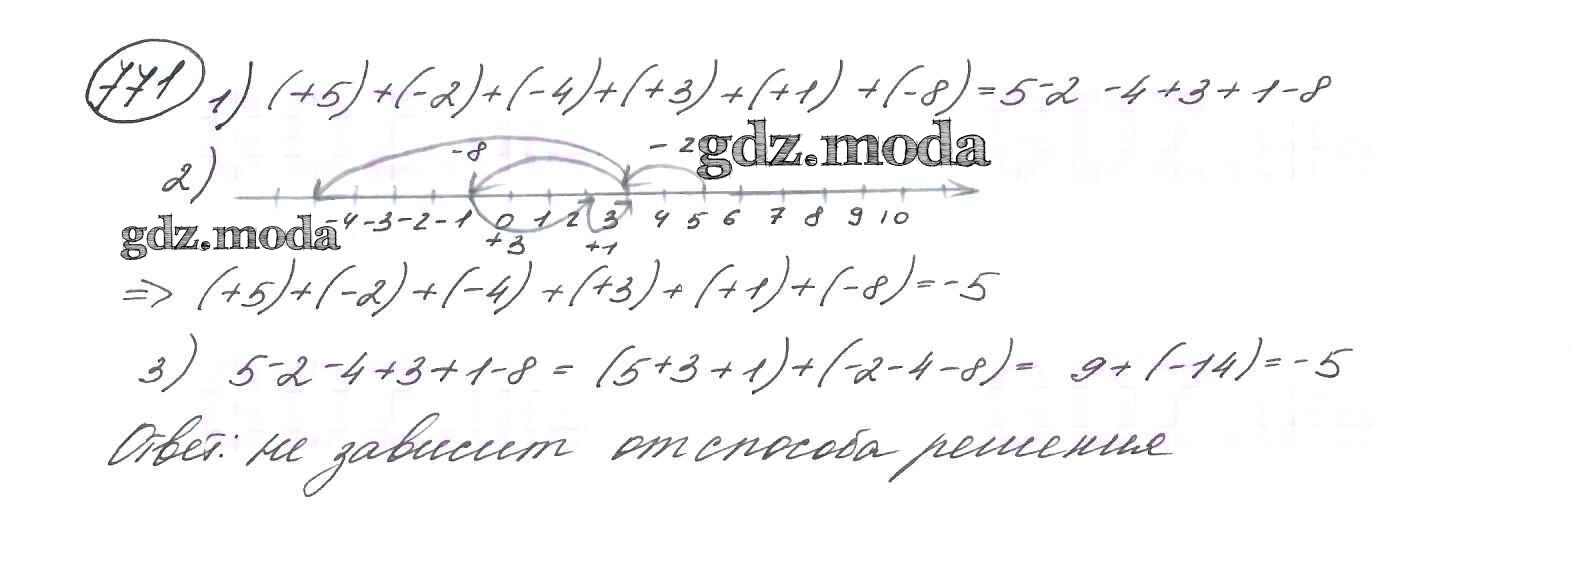 771 1) (+5)+(-2)+(-4)+(+3)+(+1)+(-8)=5-2-4+3+1-8
2) -8 -2 gdz.moda
gdz.moda -4 -3 -2 -1 0 1 2 3 4 5 6 7 8 9 10
+3 +1
=> (+5)+(-2)+(-4)+(+3)+(+1)+(-8)=-5
3) 5-2-4+3+1-8=(5+3+1)+(-2-4-8)= 9+(-14)=-5
Ответ: не зависит от способа решения